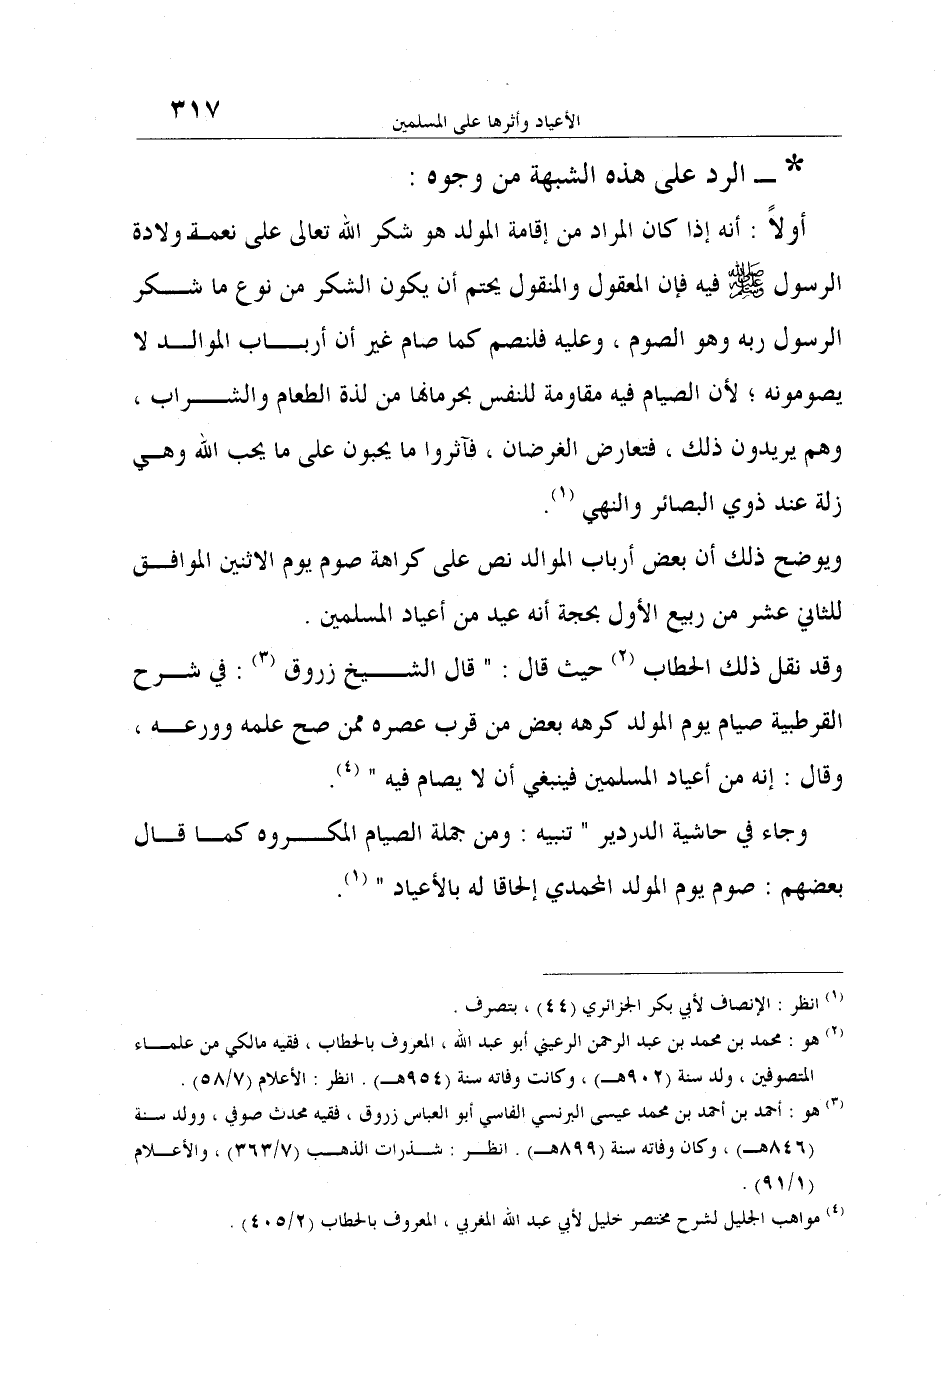 الأعياد وأثرها على المسلمين ٣١٧
* ــ الرد على هذه الشبهة من وجوه :
أولاً : أنه إذا كان المراد من إقامة المولد هو شكر الله تعالى على نعمة ولادة
الرسول ﷺ فيه فإن المعقول والمنقول يحتم أن يكون الشكر من نوع ما شكر
الرسول ربه وهو الصوم ، وعليه فلنصم كما صام غير أن أرباب الموالد لا
يصومونه ؛ لأن الصيام فيه مقاومة للنفس بحرمانها من لذة الطعام والشراب ،
وهم يريدون ذلك ، فتعارض الغرضان ، فآثروا ما يحبون على ما يحب الله وهي
زلة عند ذوي البصائر والنهي (١).
ويوضح ذلك أن بعض أرباب الموالد نص على كراهة صوم يوم الاثنين الموافق
للثاني عشر من ربيع الأول بحجة أنه عيد من أعياد المسلمين .
وقد نقل ذلك الحطاب (٢) حيث قال : " قال الشيخ زروق (٣) : في شرح
القرطبية صيام يوم المولد كرهه بعض من قرب عصره ممن صح علمه وورعه ،
وقال : إنه من أعياد المسلمين فينبغي أن لا يصام فيه " (٤).
وجاء في حاشية الدردير " تنبيه : ومن جملة الصيام المكروه كما قال
بعضهم : صوم يوم المولد المحمدي إلحاقا له بالأعياد " (١).
(١) انظر : الإنصاف لأبي بكر الجزائري (٤٤) ، بتصرف .
(٢) هو : محمد بن محمد بن عبد الرحمن الرعيني أبو عبد الله ، المعروف بالحطاب ، فقيه مالكي من علماء
المتصوفين ، ولد سنة (٩٠٢هـ) ، وكانت وفاته سنة (٩٥٤هـ) . انظر : الأعلام (٥٨/٧) .
(٣) هو : أحمد بن أحمد بن محمد عيسى البرنسي الفاسي أبو العباس زروق ، فقيه محدث صوفي ، وولد سنة
(٨٤٦هـ) ، وكان وفاته سنة (٨٩٩هـ) . انظر : شذرات الذهب (٣٦٣/٧) ، والأعلام
(٩١/١) .
(٤) مواهب الجليل لشرح مختصر خليل لأبي عبد الله المغربي ، المعروف بالحطاب (٤٠٥/٢) .